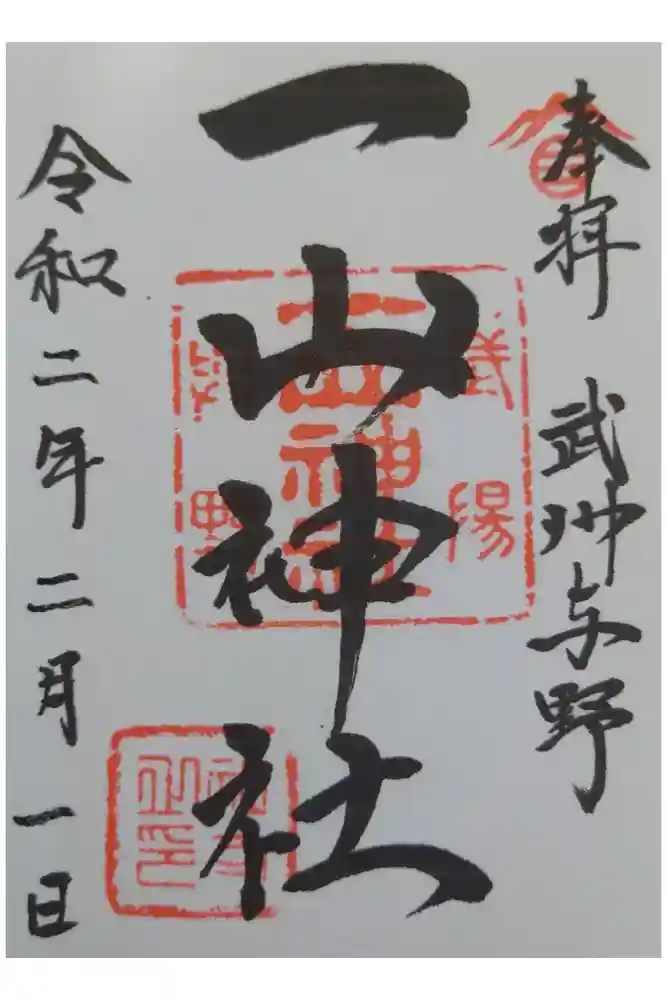 奉拝 武州与野
一山神社
令和二年二月一日
武陽
與野
一山神社